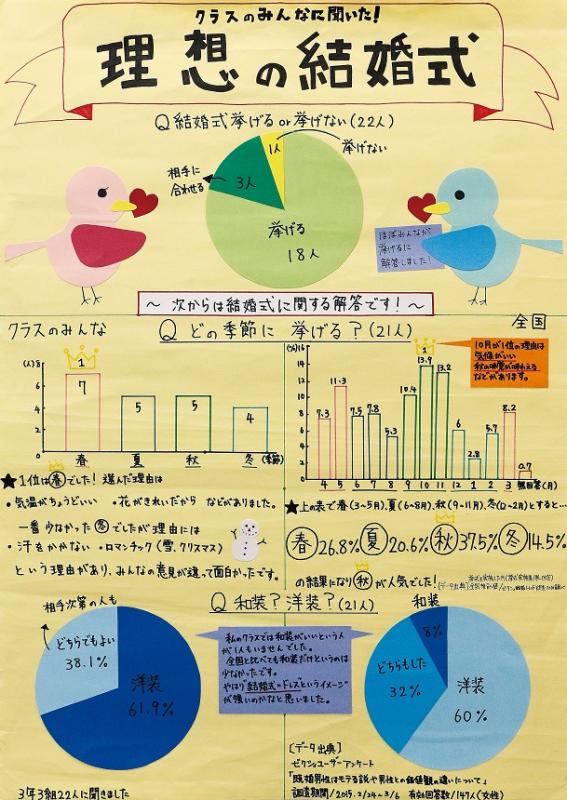 クラスのみんなに聞いた！
理想の結婚式
Q 結婚式挙げる or 挙げない(22人)
1人
挙げない
相手に
合わせる
3人
挙げる
18人
ほぼみんなが
挙げるに
解答しました！
～ 次からは結婚式に関する解答です！～
クラスのみんな
Q どの季節に 挙げる？(21人)
全国
(人)
8
6
4
2
0
1
7
5
5
4
春
夏
秋
冬
(季節)
(%)
16
14
12
10
8
6
4
2
0
7.3
11.3
7.5
7.8
5.3
10.4
1
13.9
13.2
6
2.8
5.7
8.2
0.7
4 5 6 7 8 9 10 11 12 1 2 3 無回答(月)
10月が1位の理由は
気候がいい
秋の味覚が味わえる
などがあります。
★1位は春でした！ 選んだ理由は
・気温がちょうどいい ・花がきれいだから などがありました。
一番少なかった冬でしたが理由には
・汗をかかない ・ロマンチック(雪、クリスマス)
という理由があり、みんなの意見が違って面白かったです。
★上の表で春(3～5月)、夏(6～8月)、秋(9～11月)、冬(12～2月)とすると…
春26.8% 夏20.6% 秋37.5% 冬14.5%
の結果になり秋が人気でした！
Q 和装？洋装？(21人)
相手次第の人も
どちらでもよい
38.1%
洋装
61.9%
私のクラスでは和装がいいという人
が1人もいませんでした。
全国と比べても和装だけというのは
少なかったです。
やはり結婚式=ドレスというイメージ
が強いのかなと思いました。
和装
8%
どちらもした
32%
洋装
60%
[データ出典]
ゼクシィユーザーアンケート
「既婚男性はモテる説や男性との価値観の違いについて」
調査期間/2015.2/24～3/6 有効回答数/147人(女性)
3年3組22人に聞きました